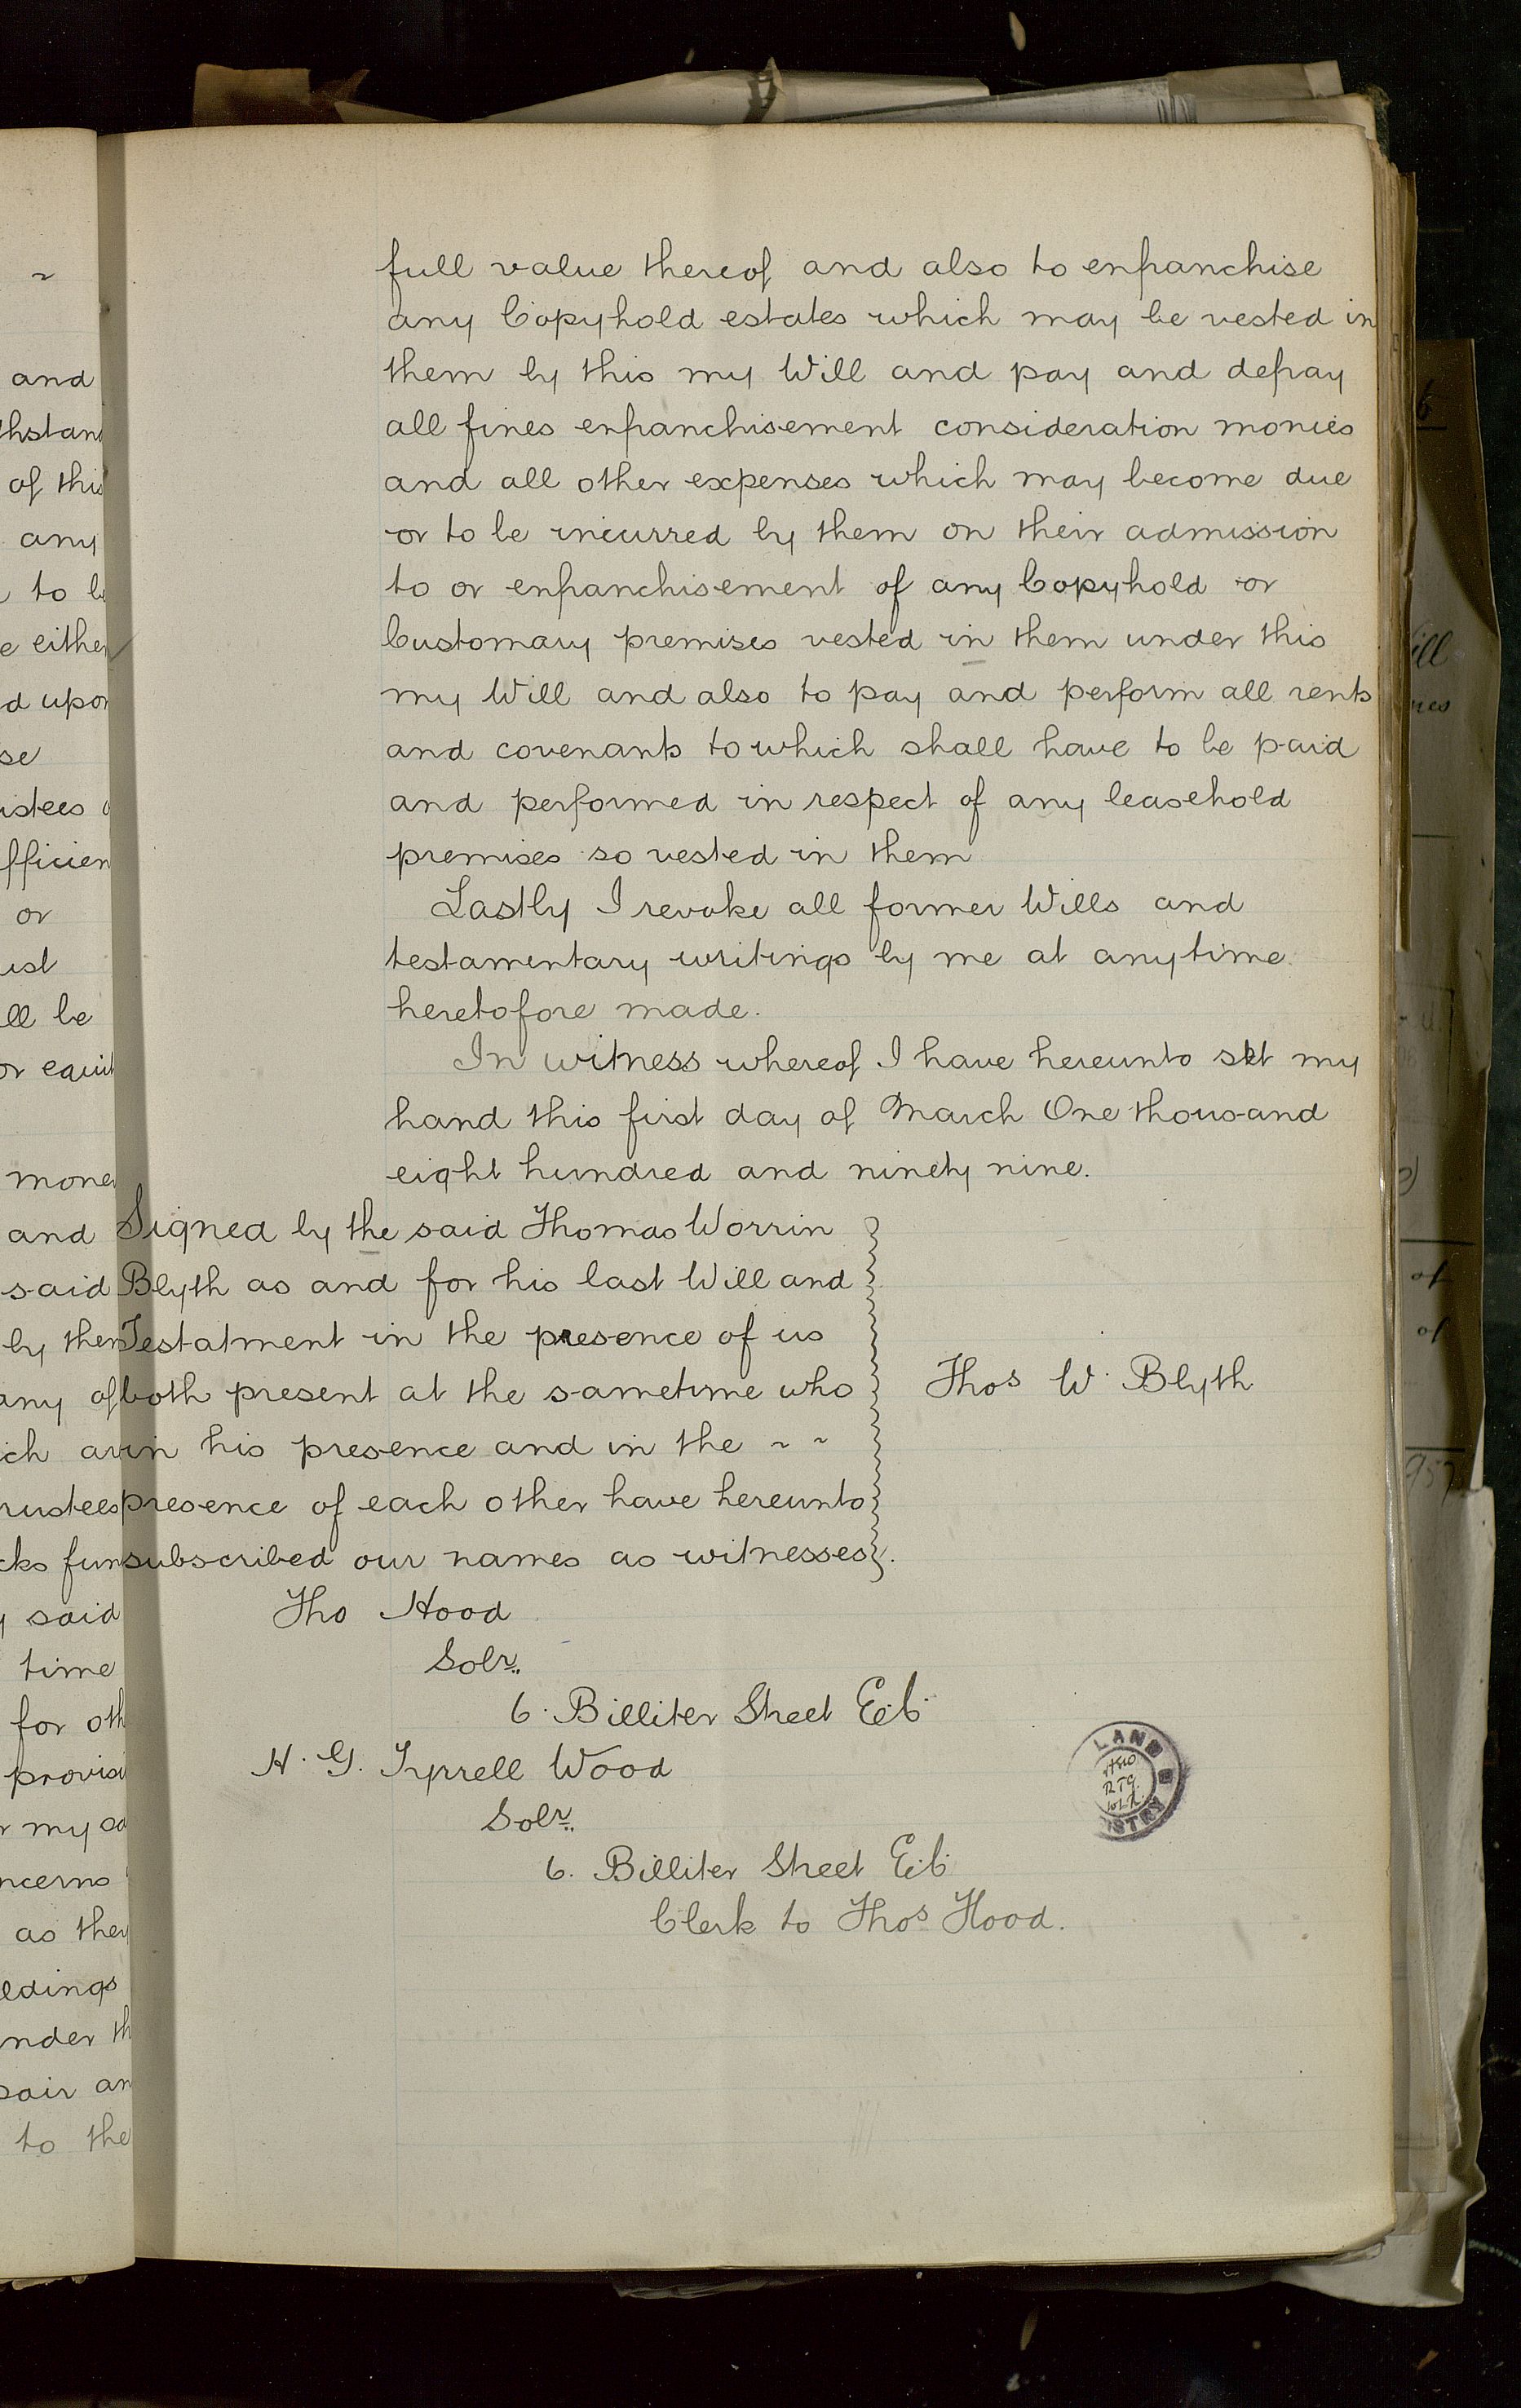 full value thereof and also to enfranchise
any Copyhold estates which may be vested in
them by this my Will and pay and defray
all fines enfranchisement consideration monies
and all other expenses which may become due
or to be incurred by them on their admission
to or enfranchisement of any Copyhold or
Customary premises vested in them under this
my Will and also to pay and perform all rents
and covenants to which shall have to be paid
and performed in respect of any leasehold
premises so vested in them
Lastly I revoke all former Wills and
testamentary writings by me at anytime
heretofore made.
In witness whereof I have hereunto set my
hand this first day of March One thousand
eight hundred and ninety nine.
Signed by the said Thomas Worrin
Blyth as and for his last Will and
Testatment in the presence of us
both present at the sametime who
in his presence and in the ~ ~
presence of each other have hereunto
subscribed our names as witnesses.
Thos W. Blyth
Tho Hood
Solr.
6. Billiter Street E.C.
H. G. Tyrrell Wood
Solr.
6. Billiter Street E.C.
Clerk to Thos Hood.
LAND